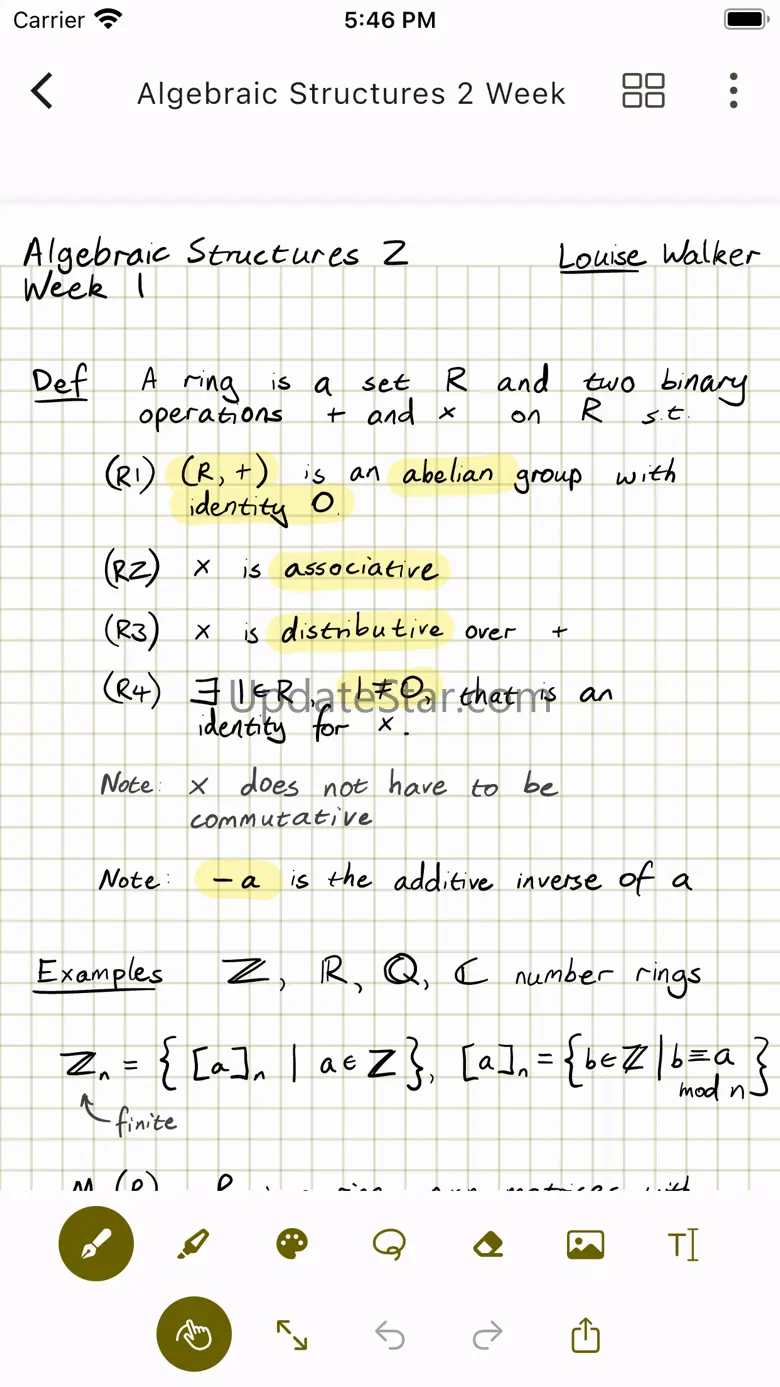 Carrier 5:46 PM
Algebraic Structures 2 Week
Algebraic Structures 2 Louise Walker
Week 1
Def A ring is a set R and two binary
operations + and × on R s.t.
(R1) (R, +) is an abelian group with
identity 0.
(R2) × is associative
(R3) × is distributive over +
(R4) ∃ 1∈R, 1≠0, that is an
UpdateStar.com
identity for ×.
Note: × does not have to be
commutative
Note: -a is the additive inverse of a
Examples ℤ, ℝ, ℚ, ℂ number rings
ℤₙ = { [a]ₙ | a∈ℤ}, [a]ₙ = {b∈ℤ | b≡a
mod n}
finite
T